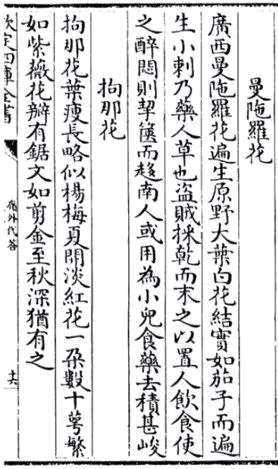 曼陁羅花
廣西曼陁羅花遍生原野大葉白花結實如茄子而遍
生小刺乃藥人草也盗賊採乾而末之以置人飲食使
之醉悶則挈篋而趍南人或用為小兒食藥去積甚峻
拘那花
拘那花葉瘦長略似楊梅夏開淡紅花一朶數十萼繁
如紫薇花瓣有鋸文如剪金至秋深猶有之
欽定四庫全書
嶺外代答
十六